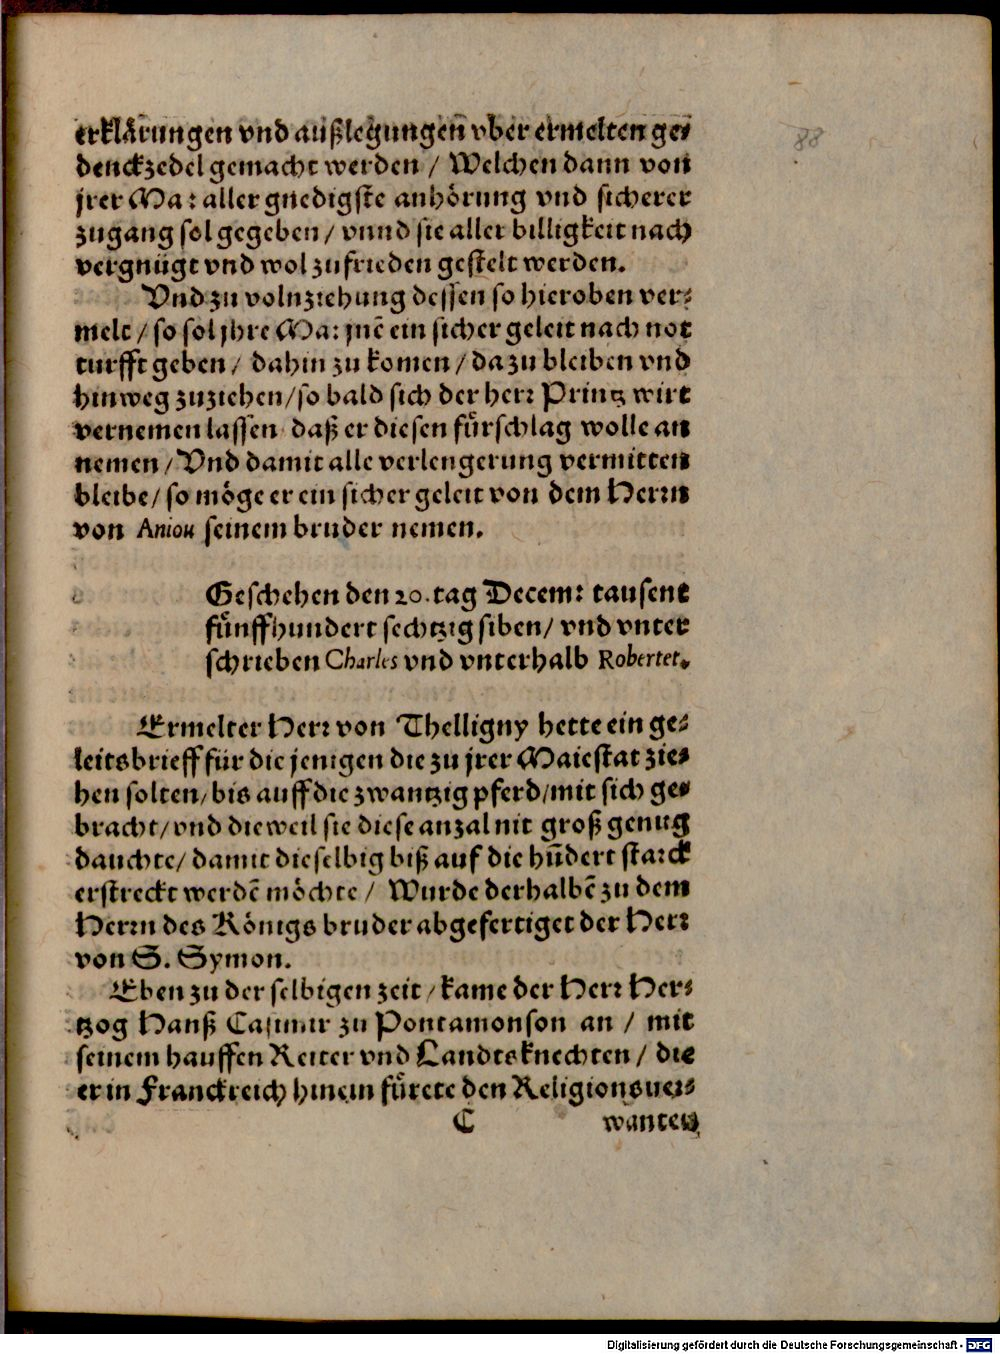 88
erklärungen vnd außlegungen vber ermelten ge-
denckzedel gemacht werden / Welchen dann von
jrer Ma: aller gnedigste anhörung vnd sicherer
zugang sol gegeben / vnnd sie aller billigkeit nach
vergnügt vnd wol zufrieden gestelt werden.
Vnd zu volnziehung dessen so hieroben ver-
melt / so sol jhre Ma: jnē ein sicher geleit nach not
turfft geben / dahin zu komen / da zu bleiben vnd
hinweg zuziehen / so bald sich der herr Printz wirt
vernemen lassen daß er diesen fürschlag wolle an
nemen / Vnd damit alle verlengerung vermitten
bleibe / so möge er ein sicher geleit von dem Herrn
von Aniou seinem bruder nemen.
Geschehen den 20. tag Decem: tausent
fünffhundert sechtzig siben / vnd vnter
schrieben Charles vnd vnterhalb Robertet.
Ermelter Herr von Thelligny hette ein ge-
leitsbrieff für die jenigen die zu jrer Maiestat zie-
hen solten / bis auff die zwantzig pferd / mit sich ge-
bracht / vnd dieweil sie diese anzal nit groß genug
dauchte / damit dieselbig biß auf die hūdert starck
erstreckt werdē möchte / Wurde derhalbē zu dem
Herrn des Königs bruder abgefertiget der Herr
von S. Symon.
Eben zu der selbigen zeit / kame der Herr Her-
tzog Hanß Casimir zu Pontamonson an / mit
seinem hauffen Reiter vnd Landtsknechten / die
er in Franckreich hinein fürete den Religionsver-
C wanten
Digitalisierung gefördert durch die Deutsche Forschungsgemeinschaft - DFG